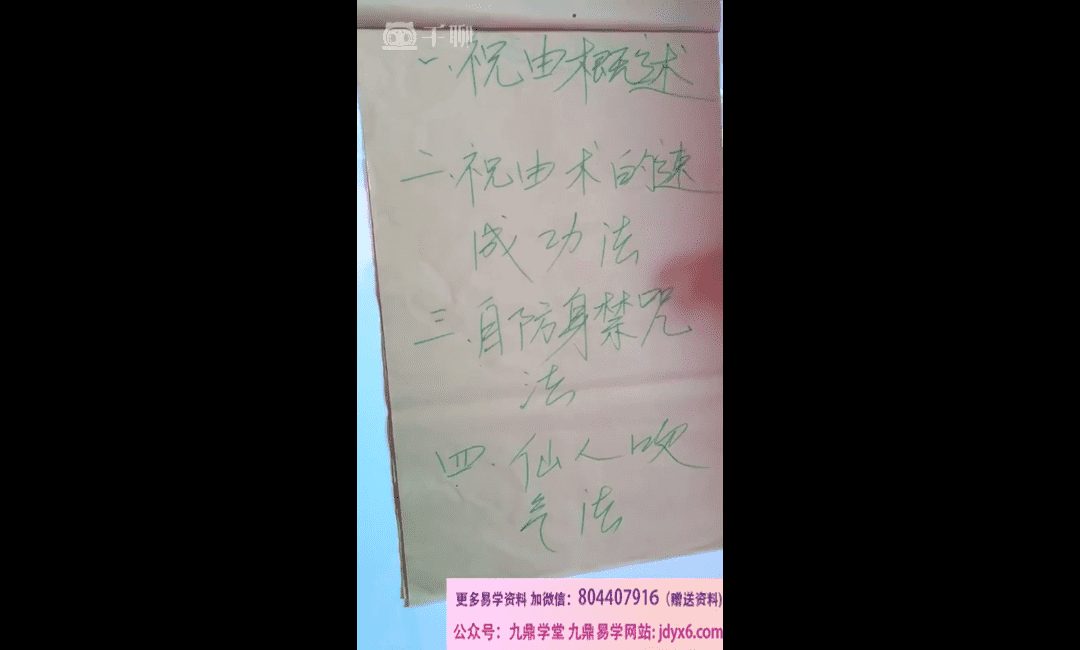 千聊
一、祝由概述
二、祝由术的速
成功法
三、自防身禁咒
法
四、仙人吹
气法
更多易学资料 加微信：804407916（赠送资料）
公众号：九鼎学堂 九鼎易学网站: jdyx6.com